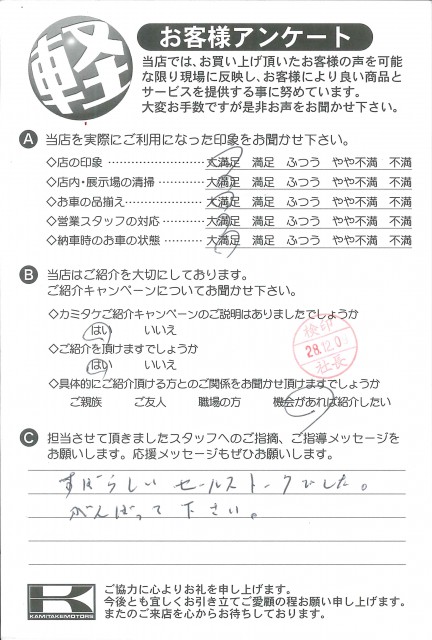 軽
お客様アンケート
当店では、お買い上げ頂いたお客様の声を可能
な限り現場に反映し、お客様により良い商品と
サービスを提供する事に努めています。
大変お手数ですが是非お声をお聞かせ下さい。
A 当店を実際にご利用になった印象をお聞かせ下さい。
◇店の印象 ………………… 大満足 満足 ふつう やや不満 不満
◇店内・展示場の清掃 ………… 大満足 満足 ふつう やや不満 不満
◇お車の品揃え ……………… 大満足 満足 ふつう やや不満 不満
◇営業スタッフの対応 ………… 大満足 満足 ふつう やや不満 不満
◇納車時のお車の状態 ………… 大満足 満足 ふつう やや不満 不満
B 当店はご紹介を大切にしております。
ご紹介キャンペーンについてお聞かせ下さい。
◇カミタケご紹介キャンペーンのご説明はありましたでしょうか
はい いいえ
◇ご紹介を頂けますでしょうか
はい いいえ
検印
28.12.0
社長
◇具体的にご紹介頂ける方とのご関係をお聞かせ頂けますでしょうか
ご親族 ご友人 職場の方 機会があれば紹介したい
C 担当させて頂きましたスタッフへのご指摘、ご指導メッセージを
お願いします。応援メッセージもぜひお願いします。
すばらしいセールストークでした。
がんばって下さい。
K
KAMITAKEMOTORS
ご協力に心よりお礼を申し上げます。
今後とも宜しくお引き立てご愛顧の程お願い申し上げます。
またのご来店を心からお待ちしております。